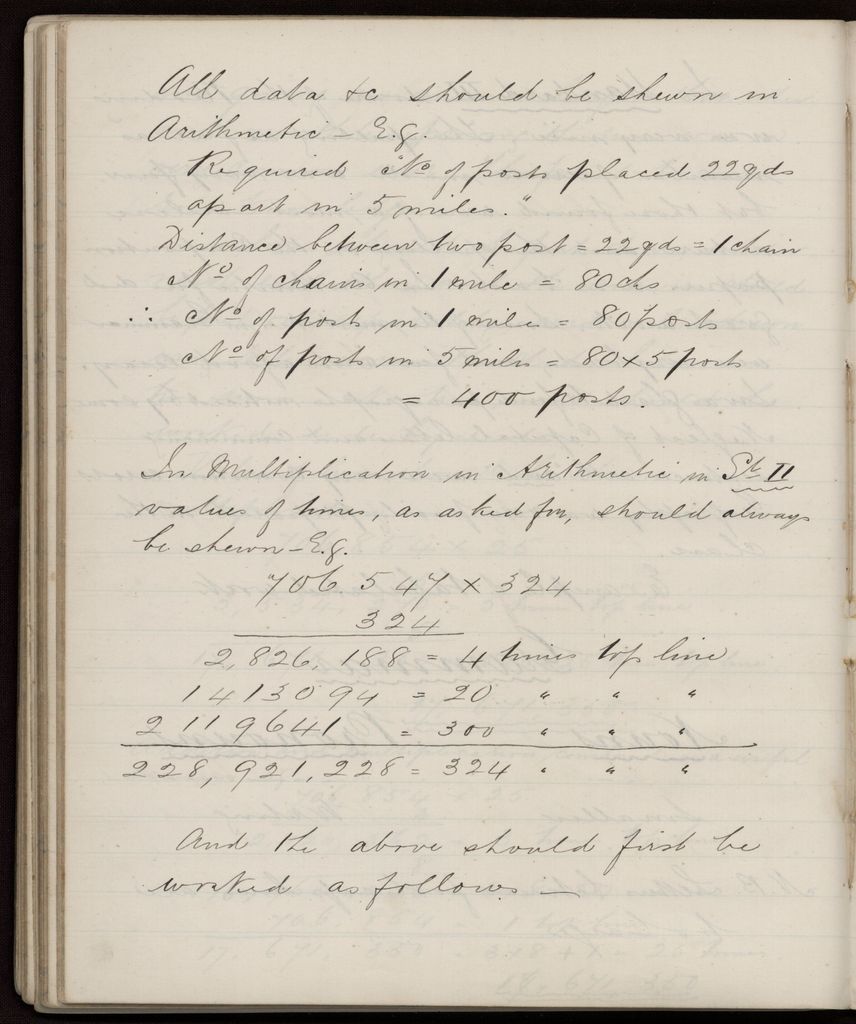 All data &c should be shewn in
Arithmetic – E.g.
Required "No of posts placed 22 yds
apart in 5 miles."
Distance between two post = 22 yds = 1 chain
No of chains in 1 mile = 80 chs
∴ No of posts in 1 mile = 80 posts
No of posts in 5 miles = 80 x 5 posts
= 400 posts.
In Multiplication in Arithmetic in St II
values of times, as asked for, should always
be shewn – E.g.
706 547 x 324
324
2,826,188 = 4 times top line
1413094 = 20 " " "
2119641 = 300 " " "
228,921,228 = 324 " " "
And the above should first be
worked as follows —